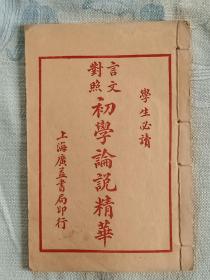 學生必讀
言文對照
初學論説精華
上海廣益書局印行